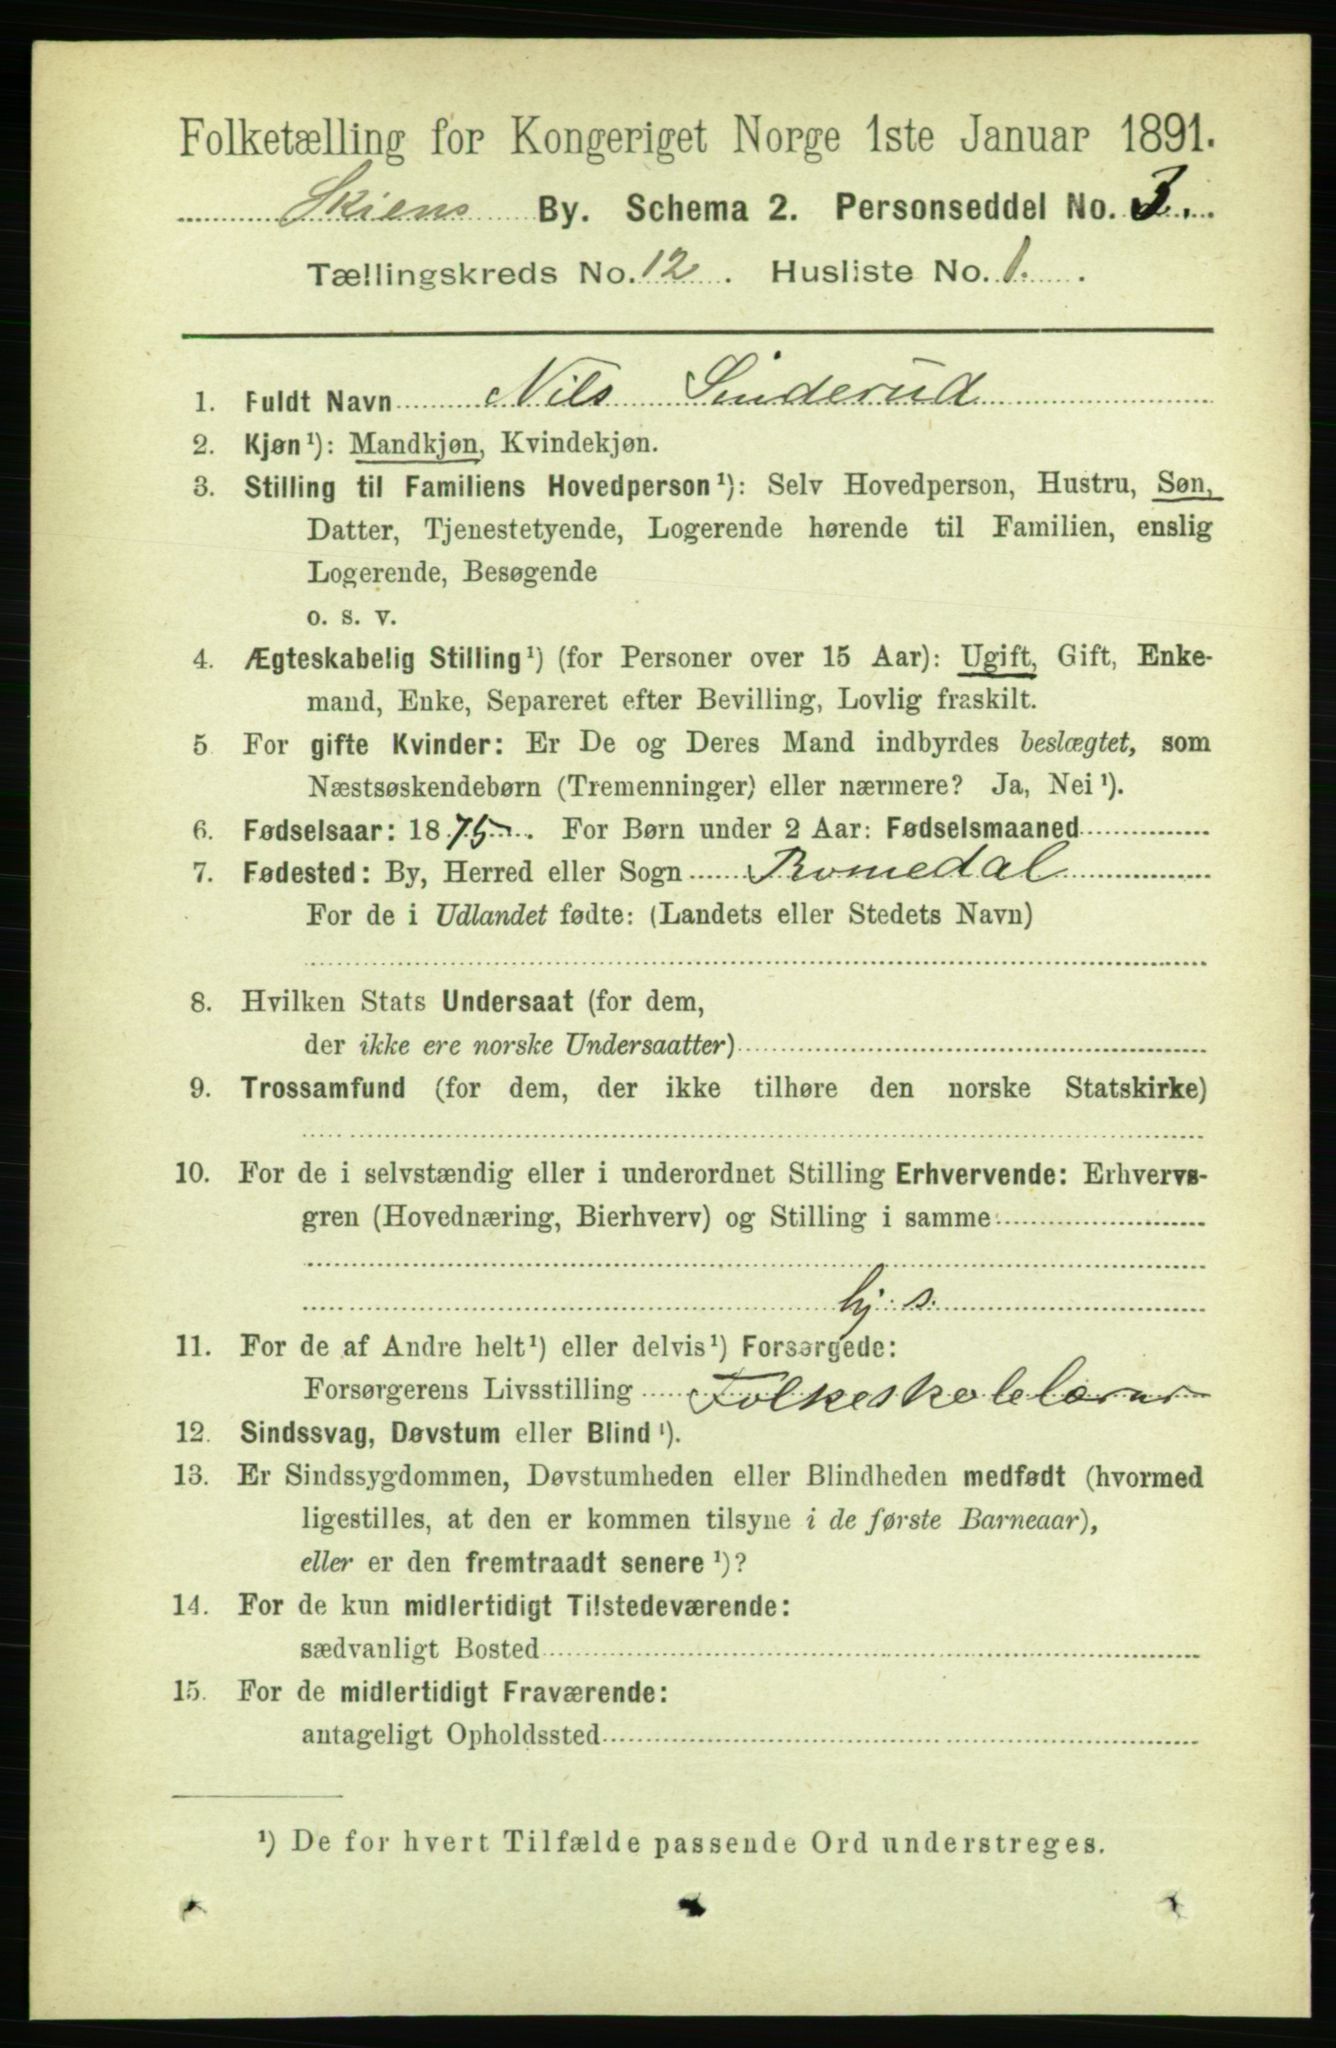 Folketælling for Kongeriget Norge 1ste Januar 1891.
Skiens By. Schema 2. Personseddel No. 3.
Tællingskreds No. 12. Husliste No. 1.
1. Fuldt Navn Nils Sinderud
2. Kjøn¹): Mandkjøn, Kvindekjøn.
3. Stilling til Familiens Hovedperson¹): Selv Hovedperson, Hustru, Søn,
Datter, Tjenestetyende, Logerende hørende til Familien, enslig
Logerende, Besøgende
o. s. v.
4. Ægteskabelig Stilling¹) (for Personer over 15 Aar): Ugift, Gift, Enke-
mand, Enke, Separeret efter Bevilling, Lovlig fraskilt.
5 For gifte Kvinder: Er De og Deres Mand indbyrdes beslægtet, som
Næstsøskendebørn (Tremenninger) eller nærmere? Ja, Nei¹).
6. Fødselsaar: 1875. For Børn under 2 Aar: Fødselsmaaned
7. Fødested: By, Herred eller Sogn Romedal
For de i Udlandet fødte: (Landets eller Stedets Navn)
8. Hvilken Stats Undersaat (for dem,
der ikke ere norske Undersaatter)
9. Trossamfund (for dem, der ikke tilhøre den norske Statskirke)
10. For de i selvstændig eller i underordnet Stilling Erhvervende: Erhvervs-
gren (Hovednæring, Bierhverv) og Stilling i samme
hj. s.
11. For de af Andre helt¹) eller delvis¹) Forsørgede:
Forsørgerens Livsstilling Folkeskolelærer
12. Sindssvag, Døvstum eller Blind¹).
13. Er Sindssygdommen, Døvstumheden eller Blindheden medfødt (hvormed
ligestilles, at den er kommen tilsyne i de første Barneaar),
eller er den fremtraadt senere¹)?
14. For de kun midlertidigt Tilstedeværende:
sædvanligt Bosted
15. For de midlertidigt Fraværende:
antageligt Opholdssted
¹) De for hvert Tilfælde passende Ord understreges.